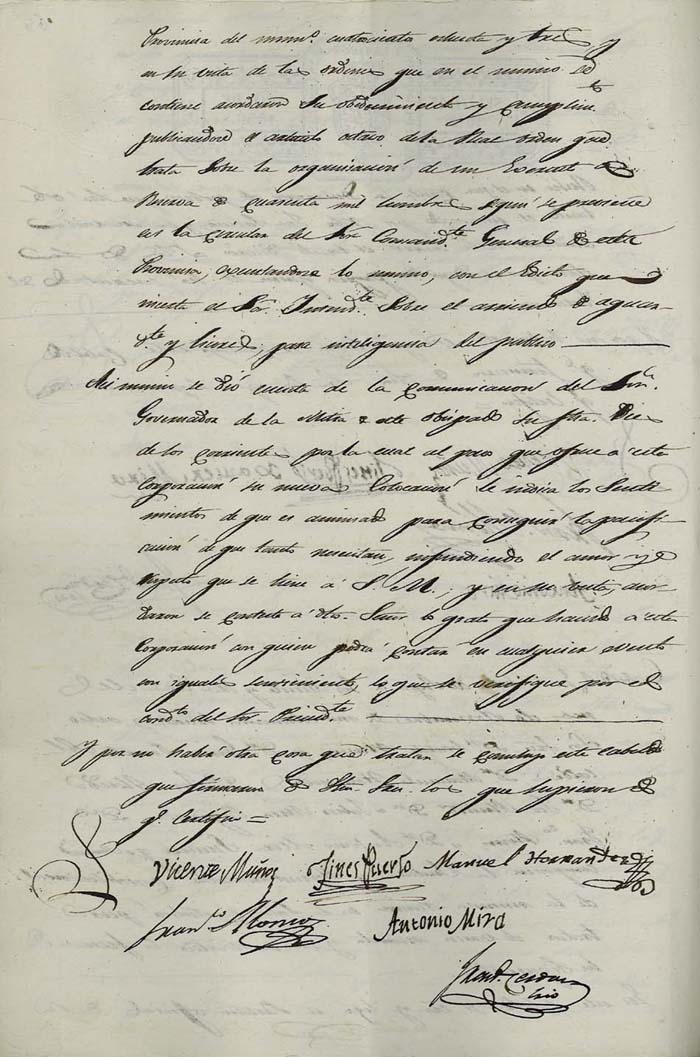 Provincia del num.º cuatrocientos ochenta y tres y
en su vista de las ordenes que en el mismo se
contiene acordaron su obedecimiento y cumplim.to
publicandose el articulo octavo de la Real orden que
trata sobre la organisacion de un Exercito de
Reserva de cuarenta mil hombres segun se previene
en la circular del Sor. Comand.te General de esta
Provincia, executandose lo mismo, con el Edicto que
inserta el Sor. Intend.te sobre el arriendo de aguar-
d.te y licores, para inteligencia del publico
Asi mismo se dió cuenta de la comunicacion del Sor.
Governador de la Mitra de este Obispado su fha. Dies
de los corrientes por la cual al paso que ofrece a esta
Corporacion su nueva Colocacion le indica los Senti
mientos de que es animado para conseguir la pacifi
cacion de que tanto necesitan, infundiendo el amor y
respeto que se tiene á S. M.; y en su vista, acor
daron se conteste á dho. Señor lo grato que ha sido a esta
Corporacion con quien podrá contar en cualquier evento
con iguales sentimientos, lo que se verifique por el
cond.to del Sor. Presid.te
Y por no haber otra cosa que tratar se concluyo este cabildo
que firmaron de Sus Sr.as los que supieron de
q.e Certifico =
Vicente Muñoz Gines Puerto Manuel Hernandez
Fran.co Alonso Antonio Mira
Fran.co Cerdan
Srio